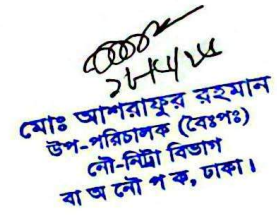 মোঃ আশরাফুর রহমান
উপ-পরিচালক (বৈঃপঃ)
নৌ-নিট্রা বিভাগ
বা অ নৌ প ক, ঢাকা।